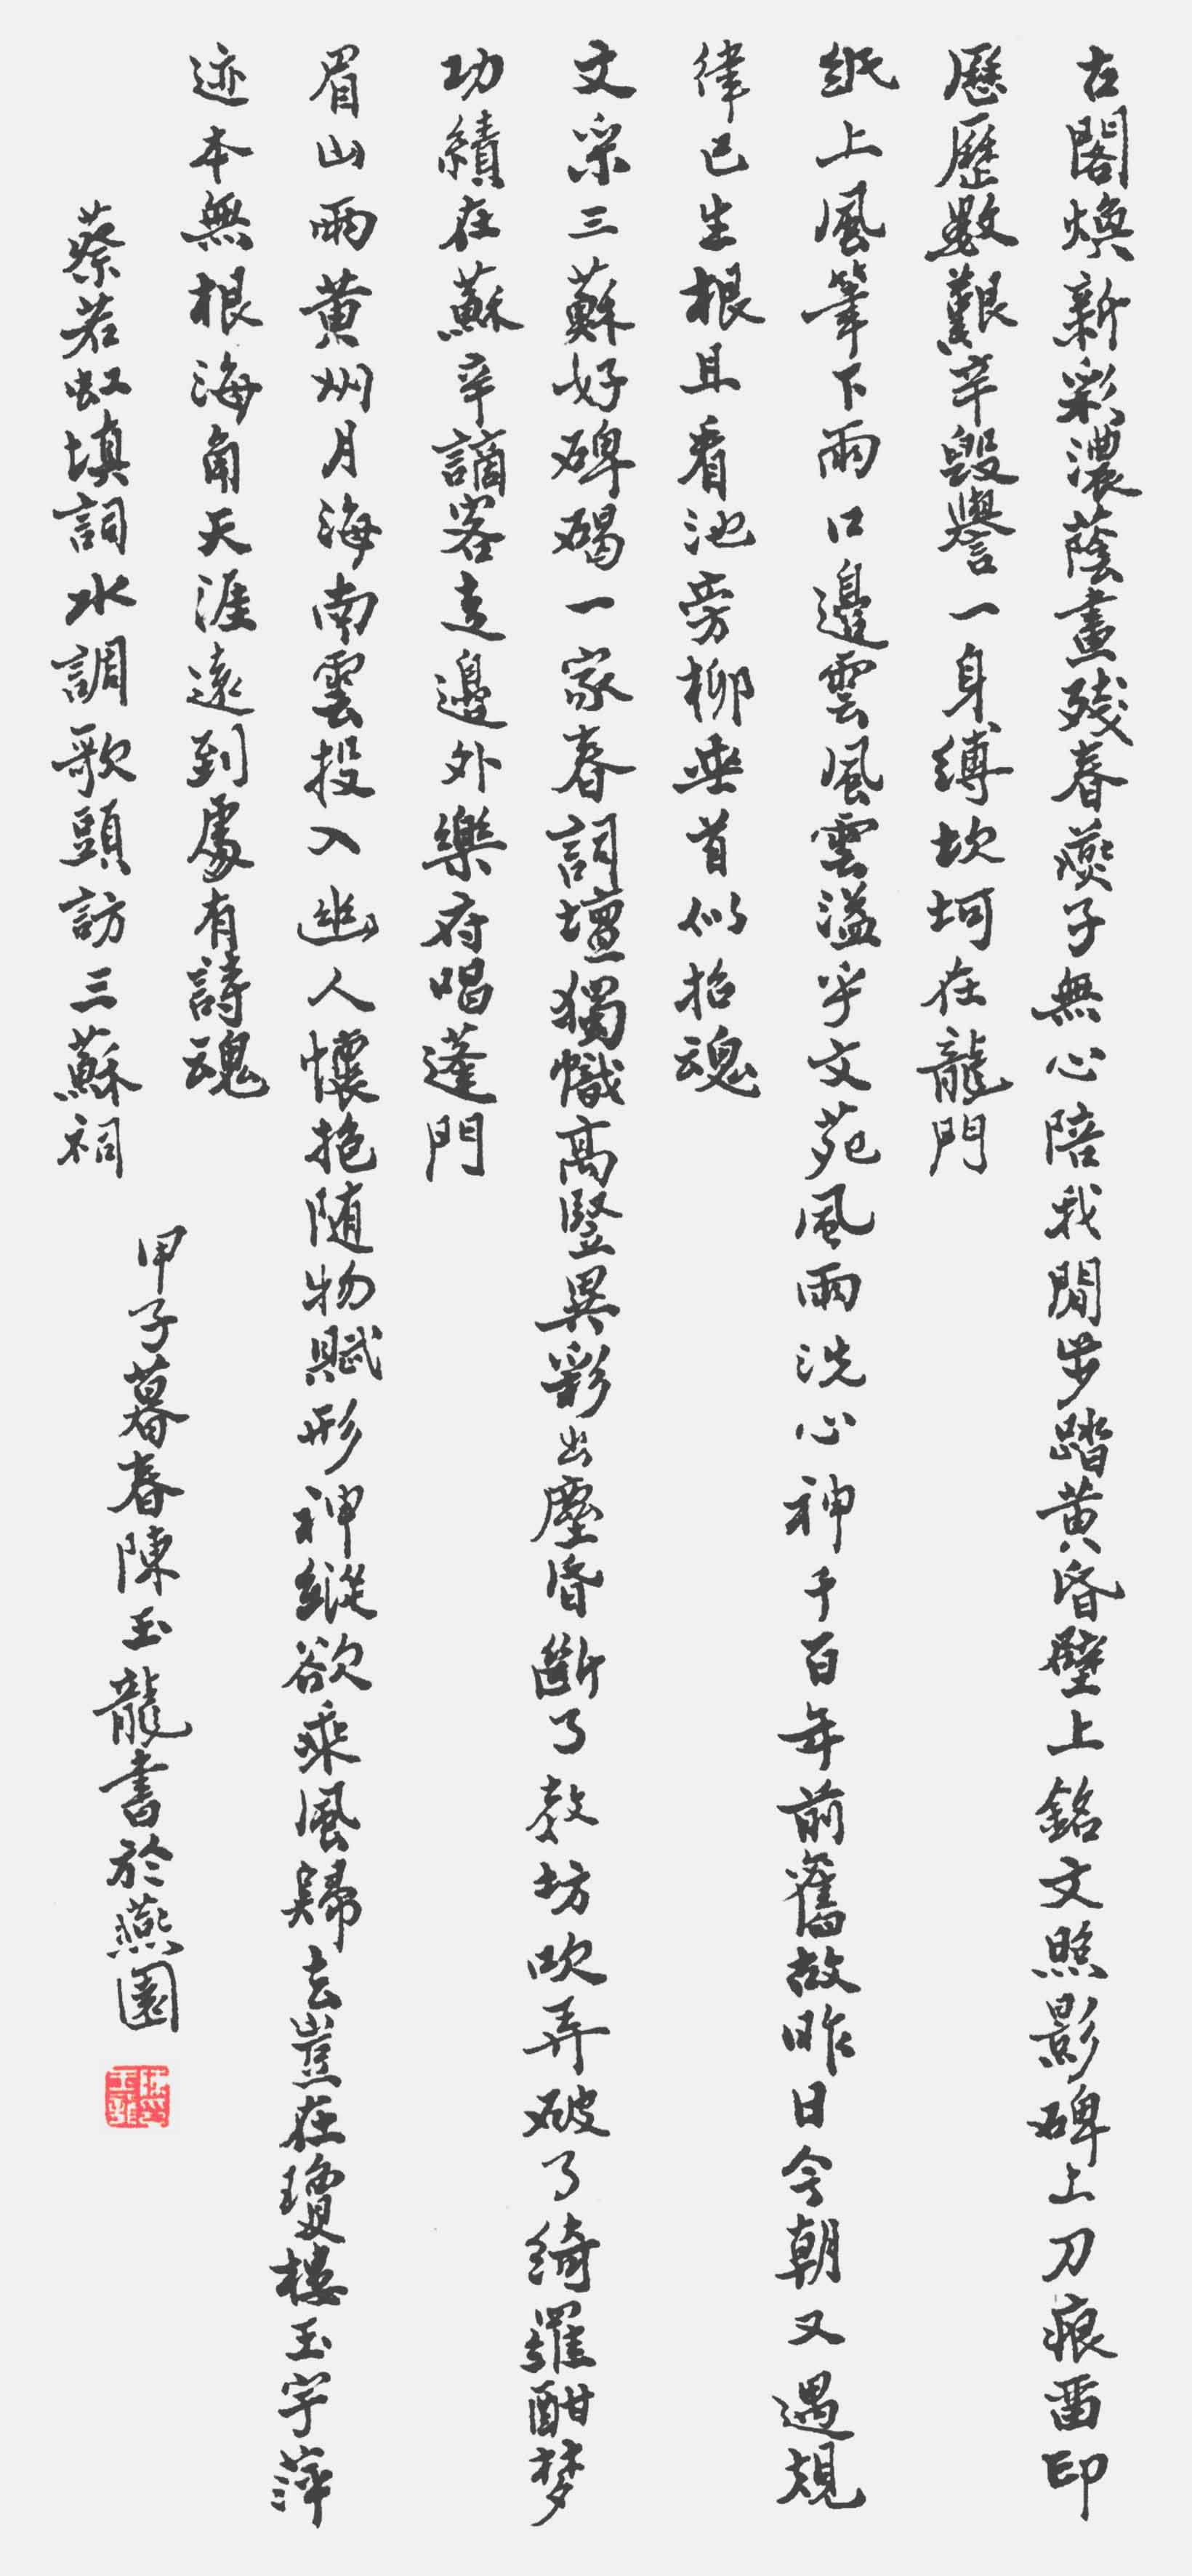 古閣煥新彩濃蔭畫殘春燕子無心陪我閒步踏黄昏壁上銘文照影碑上刀痕留印
歷歷數艱辛毀譽一身縛坎坷在龍門
紙上風筆下雨口邊雲風雲溢乎文苑風雨洗心神千百年前舊故昨日今朝又遇規
律已生根且看池旁柳垂首似招魂
文采三蘇好碑碣一家春詞壇獨幟高豎異彩出塵昏斷了教坊吹弄破了綺羅酣梦
功績在蘇辛謫客走邊外樂府唱蓬門
眉山雨黄州月海南雲投入幽人懷抱随物賦形神縱欲乘風歸去豈在瓊樓玉宇萍
迹本無根海角天涯遠到處有詩魂
蔡若虹填詞水調歌頭訪三蘇祠
甲子暮春陳玉龍書於燕園